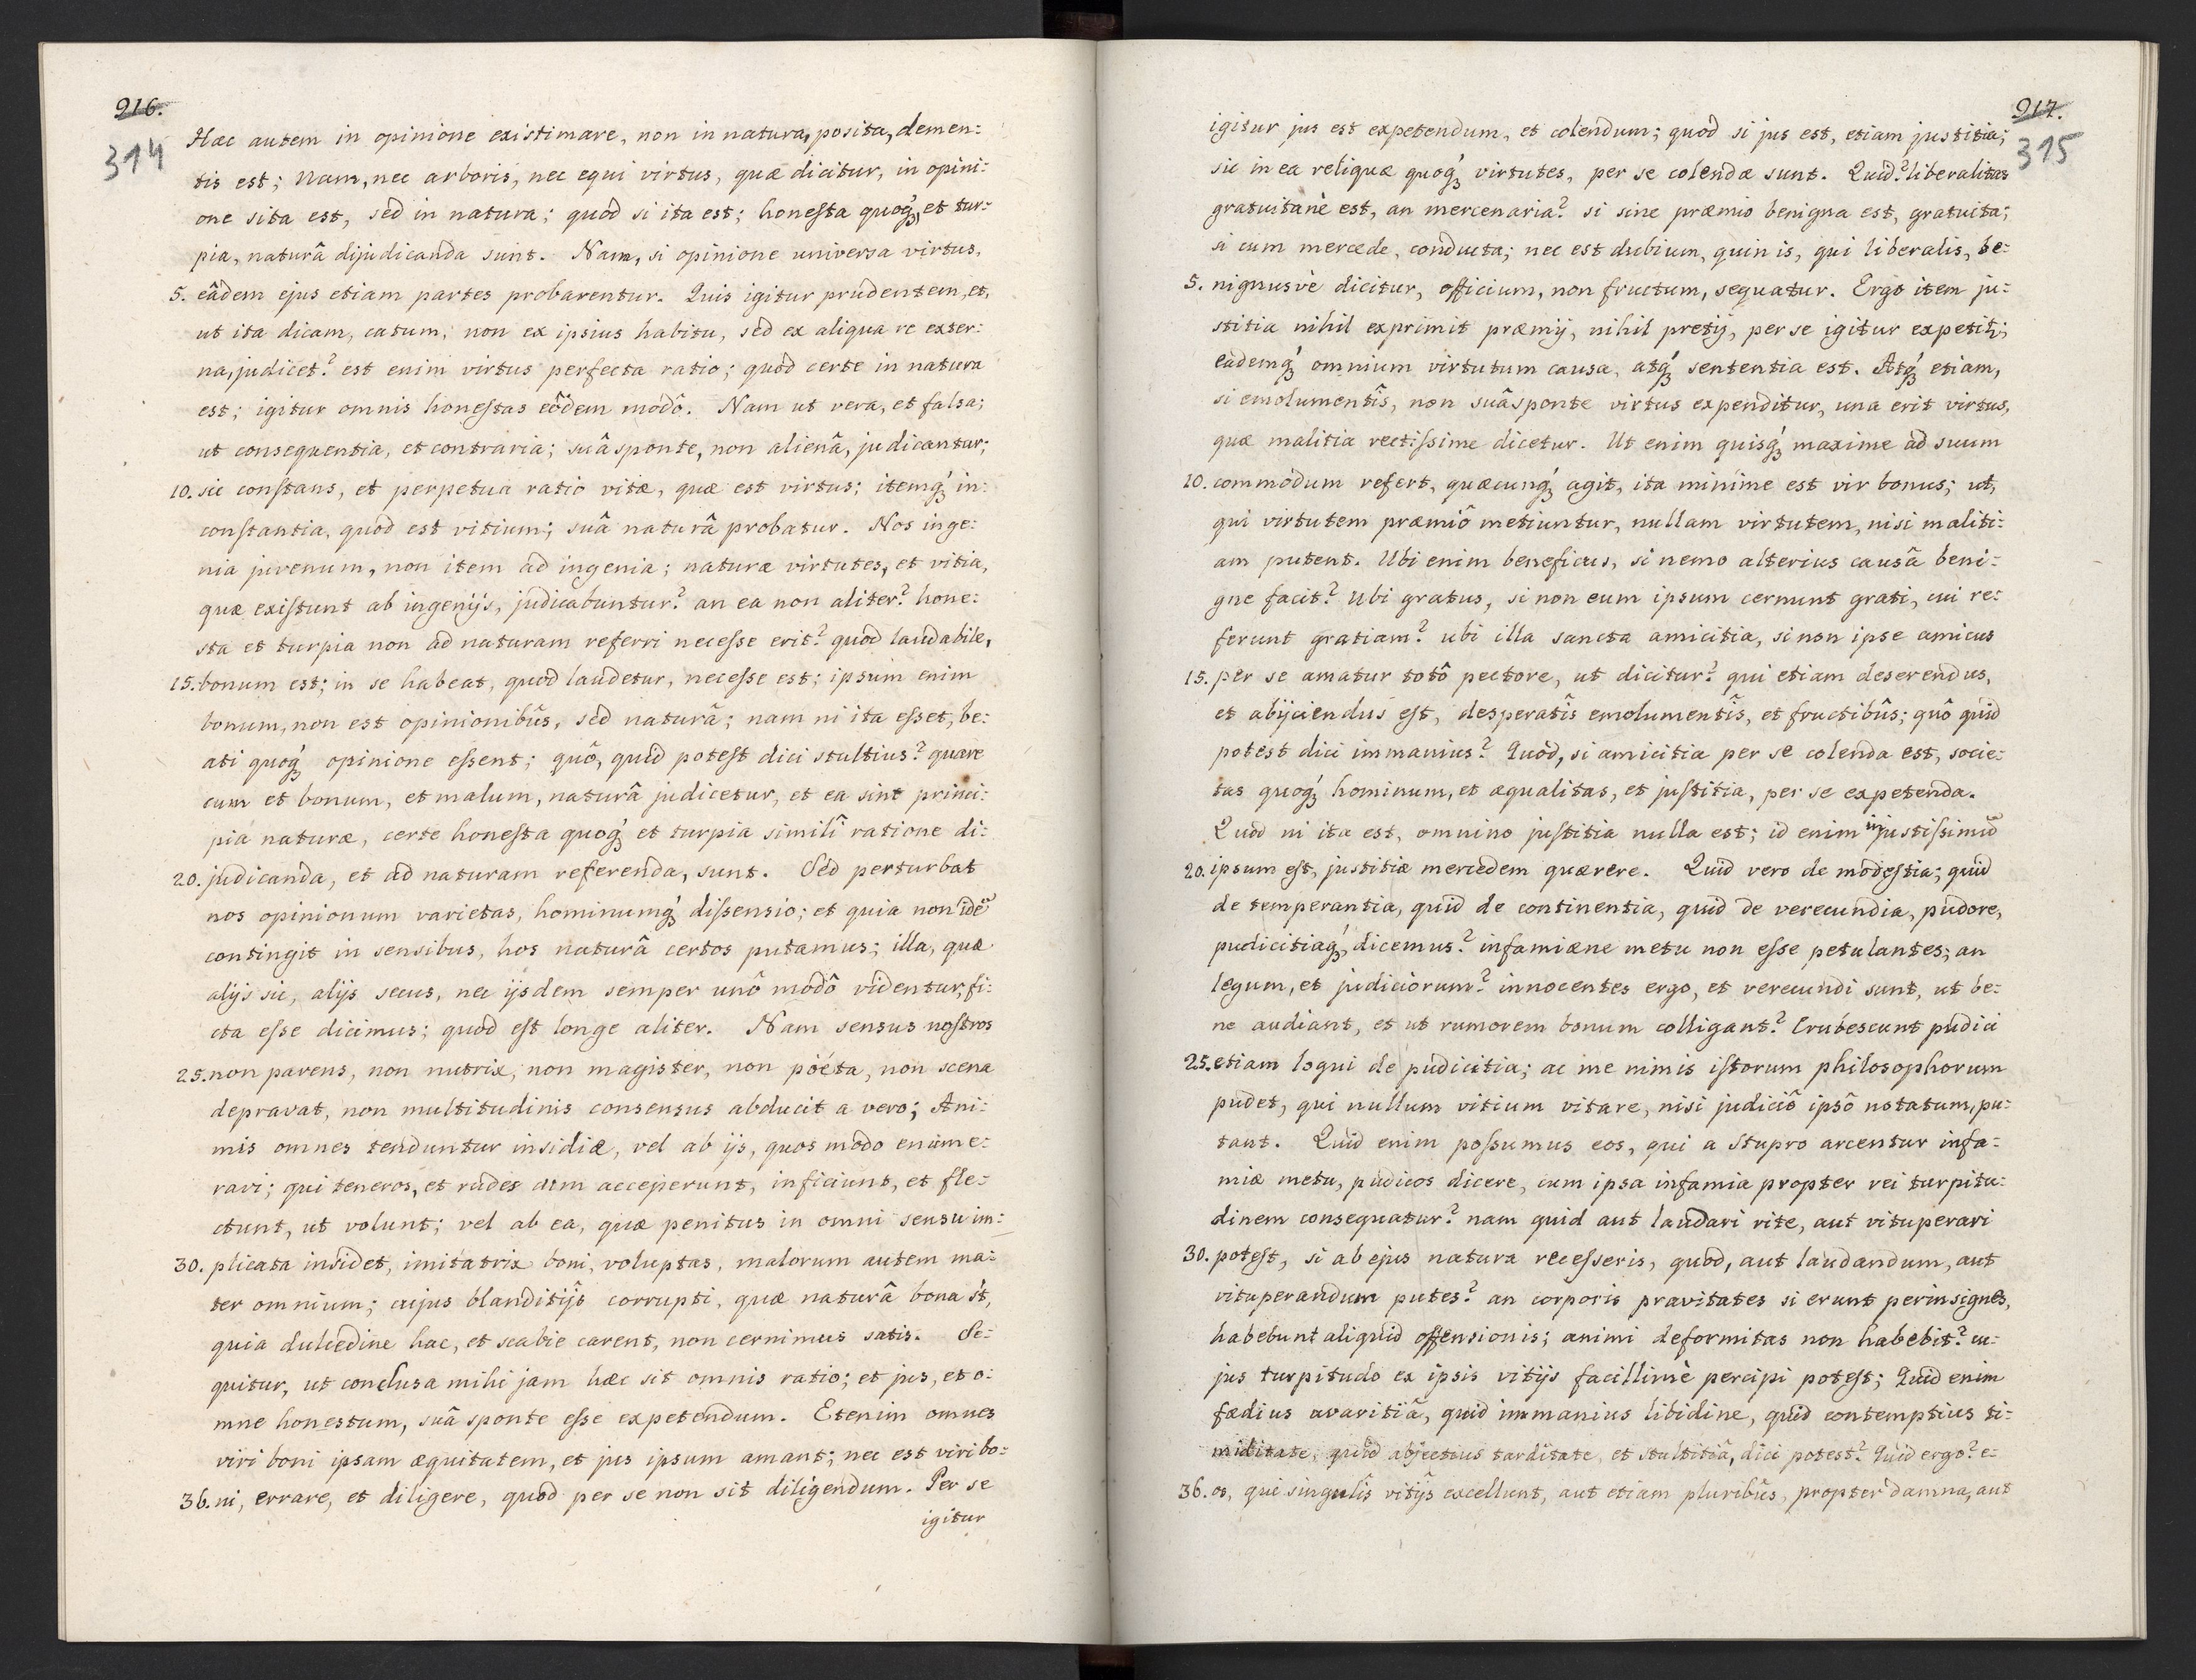 216.
314
Hæc autem in opinione existimare, non in natura, posita, demen:
tis est; nam, nec arboris, nec equi virtus, quæ dicitur, in opini:
one sita est, sed in natura; quod si ita est; honesta quoq́ꝫ et tur:
pia, naturâ dijudicanda sunt. Nam, si opinione universa virtus,
5. eâdem ejus etiam partes probarentur. Quis igitur prudentem, et,
ut ita dicam, catum, non ex ipsius habitu, sed ex aliqua re exter:
na, judicet? est enim virtus perfecta ratio; quod certe in natura
est; igitur omnis honestas eôdem modô. Nam ut vera, et falsa;
ut consequentia, et contraria; suâ sponte, non alienâ, judicantur;
10. sic constans, et perpetua ratio vitæ, quæ est virtus; itemq́ꝫ in:
constantia, quod est vitium; suâ naturâ probatur. Nos inge:
nia juvenum, non item ad ingenia; naturæ virtutes, et vitia,
quæ existunt ab ingenijs, judicabuntur? an ea non aliter? hone:
sta et turpia non ad naturam referri necesse erit? quod laudabile,
15. bonum est; in se habeat, quod laudetur, necesse est; ipsum enim
bonum, non est opinionibûs, sed naturâ; nam ni ita esset, be:
ati quoq́ꝫ opinione essent; quô, quid potest dici stultius? quare
cum et bonum, et malum, naturâ judicetur, et ea sint princi:
pia naturæ, certe honesta quoq́ꝫ et turpia similî ratione di:
20. judicanda, et ad naturam referenda, sunt. Sed perturbat
nos opinionum varietas, hominumq́ꝫ dissensio; et quia non idē
contingit in sensibus, hos naturâ certos putamus; illa, quæ
alijs sic, alijs secus, nec ijsdem semper unô modô videntur, fi:
cta esse dicimus; quod est longe aliter. Nam sensus nostros
25. non parens, non nutrix, non magister, non poéta, non scena
depravat, non multitudinis consensus abducit a vero; Ani:
mis omnes tenduntur insidiæ, vel ab ijs, quos modo enume:
ravi; qui teneros, et rudes cum acceperunt, inficiunt, et fle:
ctunt, ut volunt; vel ab ea, quæ penitus in omni sensu im:
30. plicata insidet, imitatrix boni, voluptas, malorum autem ma:
ter omnium; cujus blanditijs corrupti, quæ naturâ bona st̄,
quia dulcedine hac, et scabie carent, non cernimus satis. Se:
quitur, ut conclusa mihi jam hæc sit omnis ratio; et jus, et o:
mne honestum, suâ sponte esse expetendum. Etenim omnes
viri boni ipsam æquitatem, et jus ipsum amant; nec est viri bo:
36. ni, errare, et diligere, quod per se non sit diligendum. Per se
igitur
217.
315
igitur jus est expetendum, et colendum; quod si jus est, etiam justitia;
sic in ea reliquæ quoq́ꝫ virtutes, per se colendæ sunt. Quid? liberalitas
gratuitanè est, an mercenaria? si sine præmio benigna est, gratuita;
si cum mercede, conducta; nec est dubium, quin is, qui liberalis, be:
5. nignusvè dicitur, officium, non fructum, sequatur. Ergo item ju:
stitia nihil exprimit præmij, nihil pretij, per se igitur expetit;
eademq́ꝫ omnium virtutum causa, atq́ꝫ sententia est. Atq́ꝫ etiam,
si emolumentîs, non suâ sponte virtus expenditur, una erit virtus,
quæ malitia rectissime dicetur. Ut enim quisq́ꝫ maxime ad suum
10. commodum refert, quæcunq́ꝫ agit, ita minime est vir bonus; ut,
qui virtutem præmiô metiuntur, nullam virtutem, nisi maliti:
am putent. Ubi enim beneficus, si nemo alterius causâ beni:
gne facit? Ubi gratus, si non eum ipsum cernunt grati, cui re:
ferunt gratiam? ubi illa sancta amicitia, si non ipse amicus
15. per se amatur totô pectore, ut dicitur? qui etiam deserendus,
et abijciendus est, desperatîs emolumentîs, et fructibûs; quô quid
potest dici immanius? Quod, si amicitia per se colenda est, socie:
tas quoq́ꝫ hominum, et æqualitas, et justitia, per se expetenda.
Quod ni ita est, omnino justitia nulla est; id enim injustissimū
20. ipsum est, justitiæ mercedem quærere. Quid vero de modestia; quid
de temperantia, quid de continentia, quid de verecundia, pudore,
pudicitiaq́ꝫ, dicemus? infamiæne metu non esse petulantes; an
legum, et judiciorum? innocentes ergo, et verecundi sunt, ut be:
ne audiant, et ut rumorem bonum colligant? Erubescunt pudici
25. etiam loqui de pudicitia; ac me nimis istorum philosophorum
pudet, qui nullum vitium vitare, nisi judiciô ipsô notatum, pu:
tant. Quid enim possumus eos, qui a stupro arcentur infa:
miæ metu, pudicos dicere, cum ipsa infamia propter rei turpitu:
dinem consequatur? nam quid aut laudari rite, aut vituperari
30. potest, si ab ejus natura recesseris, quod, aut laudandum, aut
vituperandum putes? an corporis pravitates si erunt perinsignes,
habebunt aliquid offensionis; animi deformitas non habebit? cu:
jus turpitudo ex ipsis vitijs facillimè percipi potest; Quid enim
fædius avaritiâ, quid immanius libidine, quid contemptius ti:
miditate, quid abjectius tarditate, et stultitiâ, dici potest? Quid ergo? e:
36. os, qui singulîs vitijs excellunt, aut etiam pluribûs, propter damna, aut